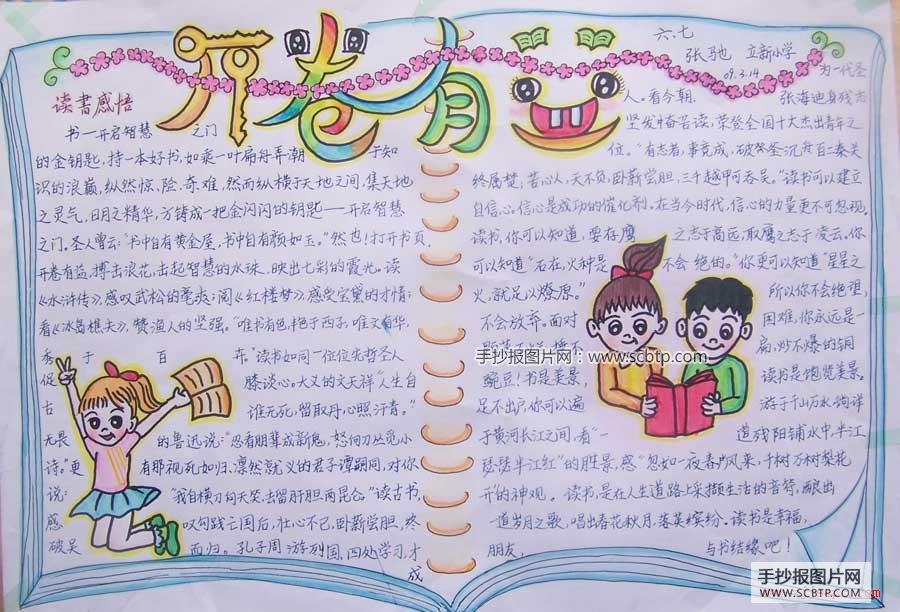 开卷有益
六.七
张驰 立新小学
09.3.14
读书感悟
书一开启智慧 之门
的金钥匙,持一本好书,如乘一叶扁舟弄潮 于知
识的浪巅,纵然惊、险、奇、难,然而纵横于天地之间,集天地
之灵气,日月之精华,方铸成一把金闪闪的钥匙——开启智慧
之门。圣人曾云:“书中自有黄金屋,书中自有颜如玉。”然也!打开书页,
开卷有益,搏击浪花,击起智慧的水珠,映出七彩的霞光。读
《水浒传》,感叹武松的豪爽;阅《红楼梦》,感受宝黛的才情;
看《冰岛渔夫》,赞渔人的坚强。“唯书有色,艳于西子,唯文有华,
秀于百卉。”读书如同一位位先哲圣人
促 膝谈心。大义的文天祥“人生自
古 谁无死,留取丹心照汗青。”
无畏 的鲁迅说:“忍看朋辈成新鬼,怒向刀丛觅小
诗。”更 有那视死如归,凛然就义的君子谭嗣同,对你
说: “我自横刀向天笑,去留肝胆两昆仑。”读古书,
感 叹勾践亡国后,壮心不已,卧薪尝胆,终
破吴 而归。孔子周游列国,四处学习,才
成
为一代圣
人。看今朝, 张海迪身残志
坚发奋苦读,荣登全国十大杰出青年之
位。“有志者,事竟成,破釜沉舟百二秦关
终属楚,苦心人,天不负,卧薪尝胆,三千越甲可吞吴。”读书可以建立
自信心。信心是成功的催化剂。在当今时代,信心的力量更不可忽视。
读书,你可以知道,要存鹰 之志于高远,取鹰之志于凌云。你
可以知道“石在,火种是 不会绝的。”你更可以知道“星星之
火,就足以燎原。” 所以你不会绝望,
不会放弃。面对 困难,你永远是一
扁,炒不爆的铜
豌豆!书是美景, 读书是饱览美景。
足不出户,你可以遍 游于千山万水,徜徉
于黄河长江之间,看“一 道残阳铺水中,半江
瑟瑟半江红”的胜景,感“忽如一夜春风来,千树万树梨花
开”的神观。读书,是在人生道路上采撷生活的音符,酿出
一道岁月之歌,唱出春花秋月,落英缤纷。读书是幸福,
朋友, 与书结缘吧!
手抄报图片网:www.scbtp.com
手抄报图片网
WWW.SCBTP.COM